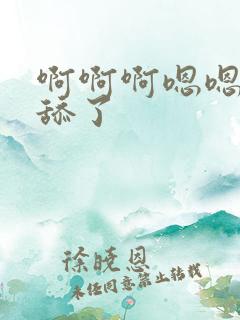 啊啊啊嗯嗯
舔了
徐晓恩
未经同意禁止转载